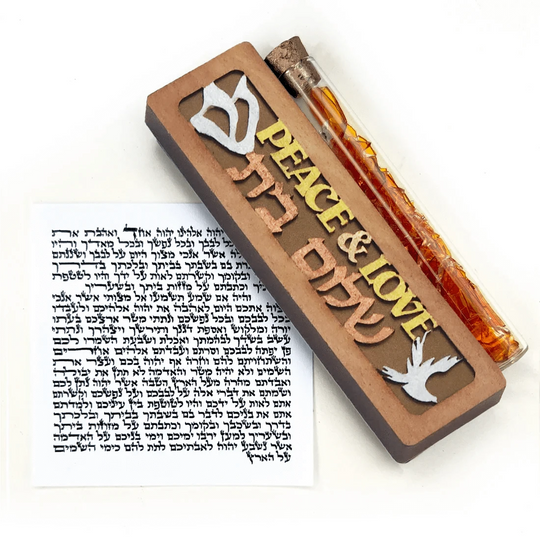 ש
PEACE & LOVE
שלום בית
יהוה אלהינו יהוה אחד ואהבת את
בכל לבבך ובכל נפשך ובכל מאדך והיו
אשר אנכי מצוך היום על לבבך ושננתם
בם בשבתך בביתך ובלכתך בדרך
ובקומך וקשרתם לאות על ידך והיו לטטפת
וכתבתם על מזזות ביתך ובשעריך
והיה אם שמע תשמעו אל מצותי אשר אנכי
אתכם היום לאהבה את יהוה אלהיכם ולעבדו
בכל לבבכם ובכל נפשכם ונתתי מטר ארצכם בעתו
יורה ומלקוש ואספת דגנך ותירשך ויצהרך ונתתי
עשב בשדך לבהמתך ואכלת ושבעת השמרו לכם
פן יפתה לבבכם וסרתם ועבדתם אלהים אחרים
והשתחויתם להם וחרה אף יהוה בכם ועצר את
השמים ולא יהיה מטר והאדמה לא תתן את יבולה
ואבדתם מהרה מעל הארץ הטבה אשר יהוה נתן לכם
ושמתם את דברי אלה על לבבכם ועל נפשכם וקשרתם
אתם לאות על ידכם והיו לטוטפת בין עיניכם ולמדתם
אתם את בניכם לדבר בם בשבתך בביתך ובלכתך
בדרך ובשכבך ובקומך וכתבתם על מזוזות ביתך
ובשעריך למען ירבו ימיכם וימי בניכם על האדמה
אשר נשבע יהוה לאבתיכם לתת להם כימי השמים
על הארץ